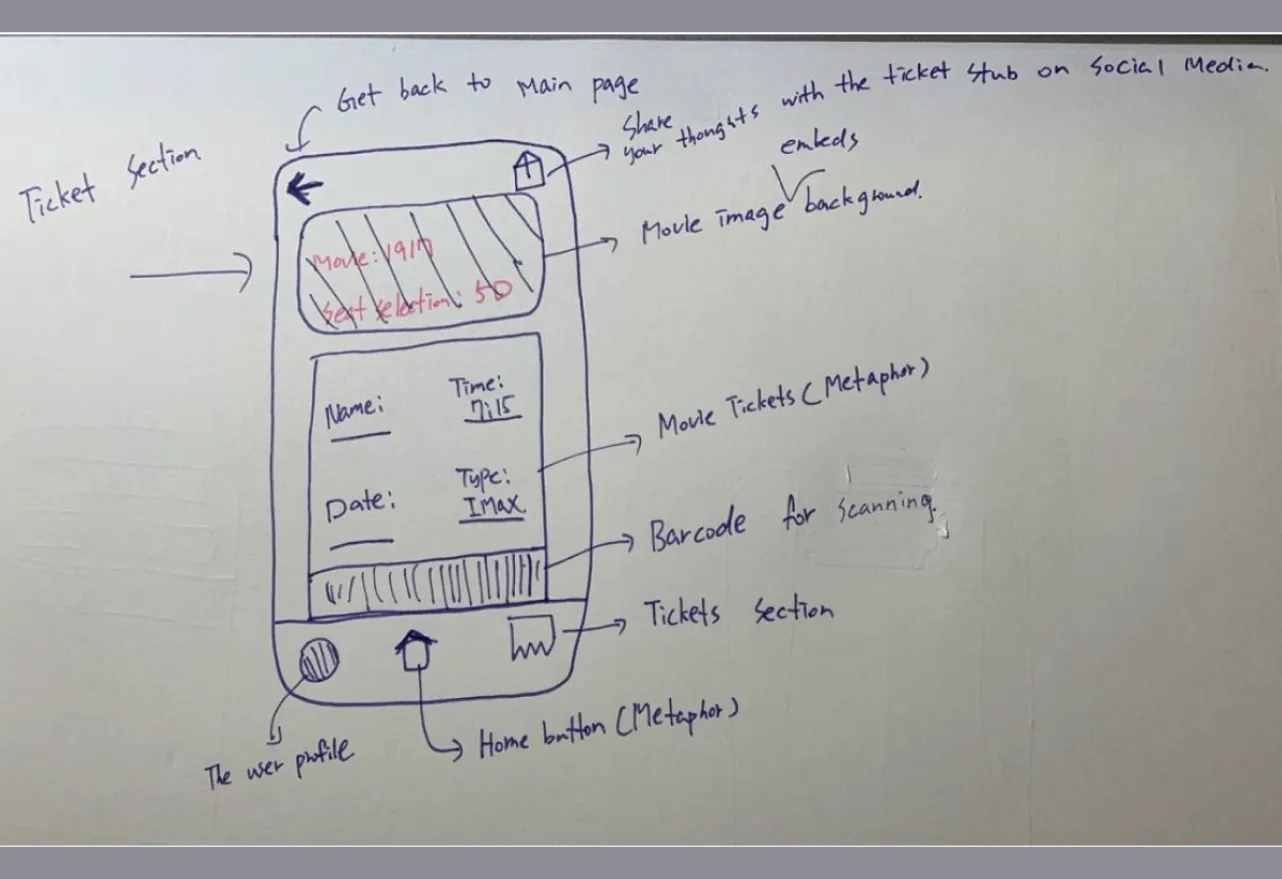 Get back to Main page
Share
your thoughts with the ticket stub on Social Media.
Ticket Section
embeds
Movie image background.
Movie: 1917
Seat selection: 5D
Name:
Time:
7:15
Movie Tickets (Metaphor)
Date:
Type:
IMAX
Barcode for scanning.
Tickets section
Home button (Metaphor)
The user profile